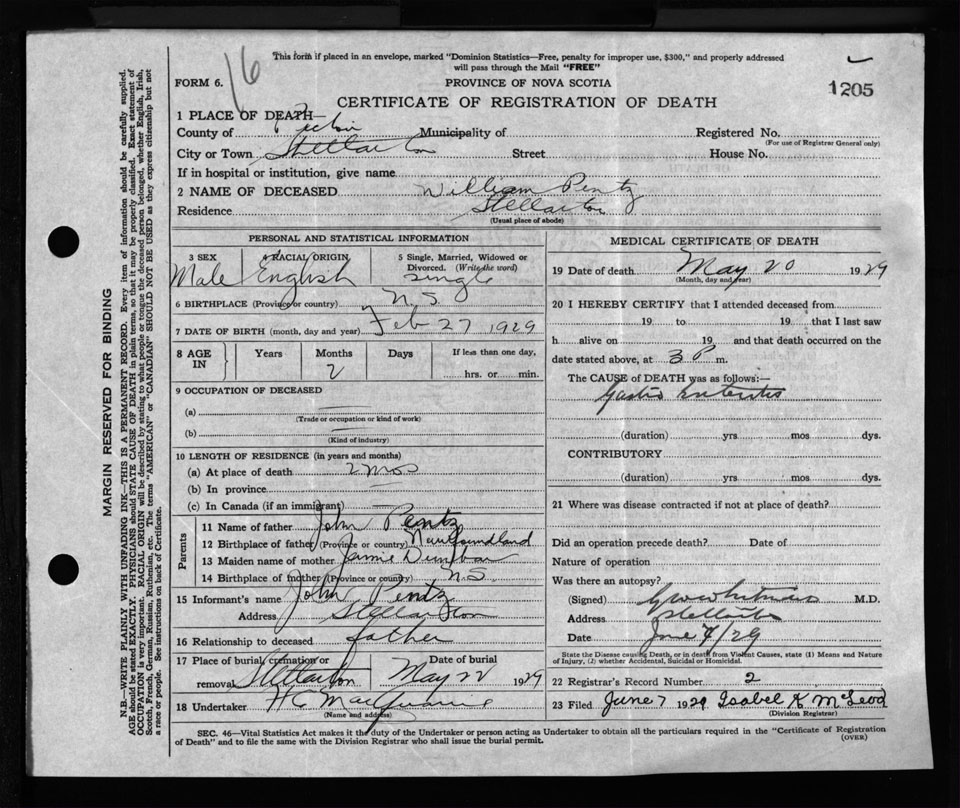 This form if placed in an envelope, marked "Dominion Statistics—Free, penalty for improper use, $300," and properly addressed
will pass through the Mail "FREE"
16
FORM 6.
PROVINCE OF NOVA SCOTIA
1205
CERTIFICATE OF REGISTRATION OF DEATH
1 PLACE OF DEATH—
County of Pictou Municipality of Registered No.
(For use of Registrar General only)
City or Town Stellarton Street House No.
If in hospital or institution, give name
2 NAME OF DECEASED William Pentz
Residence Stellarton
(Usual place of abode)
PERSONAL AND STATISTICAL INFORMATION
3 SEX 4 RACIAL ORIGIN 5 Single, Married, Widowed or
Divorced. (Write the word)
Male English single
6 BIRTHPLACE (Province or country) N.S.
7 DATE OF BIRTH (month, day and year) Feb 27 1929
8 AGE IN Years Months Days If less than one day,
2 hrs. or min.
9 OCCUPATION OF DECEASED
(a) —
(Trade or occupation or kind of work)
(b) —
(Kind of industry)
10 LENGTH OF RESIDENCE (in years and months)
(a) At place of death 2 mos
(b) In province —
(c) In Canada (if an immigrant) —
Parents
11 Name of father John Pentz
12 Birthplace of father (Province or country) Newfoundland
13 Maiden name of mother Jannie Dunbar
14 Birthplace of mother (Province or country) N.S.
15 Informant's name John Pentz
Address Stellarton
16 Relationship to deceased father
17 Place of burial, cremation or Date of burial
removal Stellarton May 22 1929
18 Undertaker H C
(Name and address)
MEDICAL CERTIFICATE OF DEATH
19 Date of death May 20 1929
(Month, day and year)
20 I HEREBY CERTIFY that I attended deceased from
19 to 19 that I last saw
h alive on 19 and that death occurred on the
date stated above, at 3 P m.
The CAUSE of DEATH was as follows:—
Gastro Enteritis
(duration) yrs mos dys.
CONTRIBUTORY
(duration) yrs mos dys.
21 Where was disease contracted if not at place of death?
Did an operation precede death? Date of
Nature of operation
Was there an autopsy?
(Signed) M.D.
Address Stellarton
Date June 7/29
State the Disease causing Death, or in death from Violent Causes, state (1) Means and Nature
of Injury, (2) whether Accidental, Suicidal or Homicidal.
22 Registrar's Record Number 2
23 Filed June 7 1929 Isabel K McLeod
(Division Registrar)
SEC. 46—Vital Statistics Act makes it the duty of the Undertaker or person acting as Undertaker to obtain all the particulars required in the "Certificate of Registration
of Death" and to file the same with the Division Registrar who shall issue the burial permit.
(OVER)
MARGIN RESERVED FOR BINDING
N.B.—WRITE PLAINLY WITH UNFADING INK—THIS IS A PERMANENT RECORD. Every item of information should be carefully supplied.
AGE should be stated EXACTLY. PHYSICIANS should STATE CAUSE OF DEATH in plain terms, so that it may be properly classified. Exact statement of
OCCUPATION is very important. RACIAL ORIGIN will be described by stating to what people or tongue the deceased person belonged, whether English, Irish,
Scotch, French, German, Russian, Ruthenian, etc. The terms "AMERICAN" or "CANADIAN" SHOULD NOT BE USED as they express citizenship but not
a race or people. See instructions on back of Certificate.